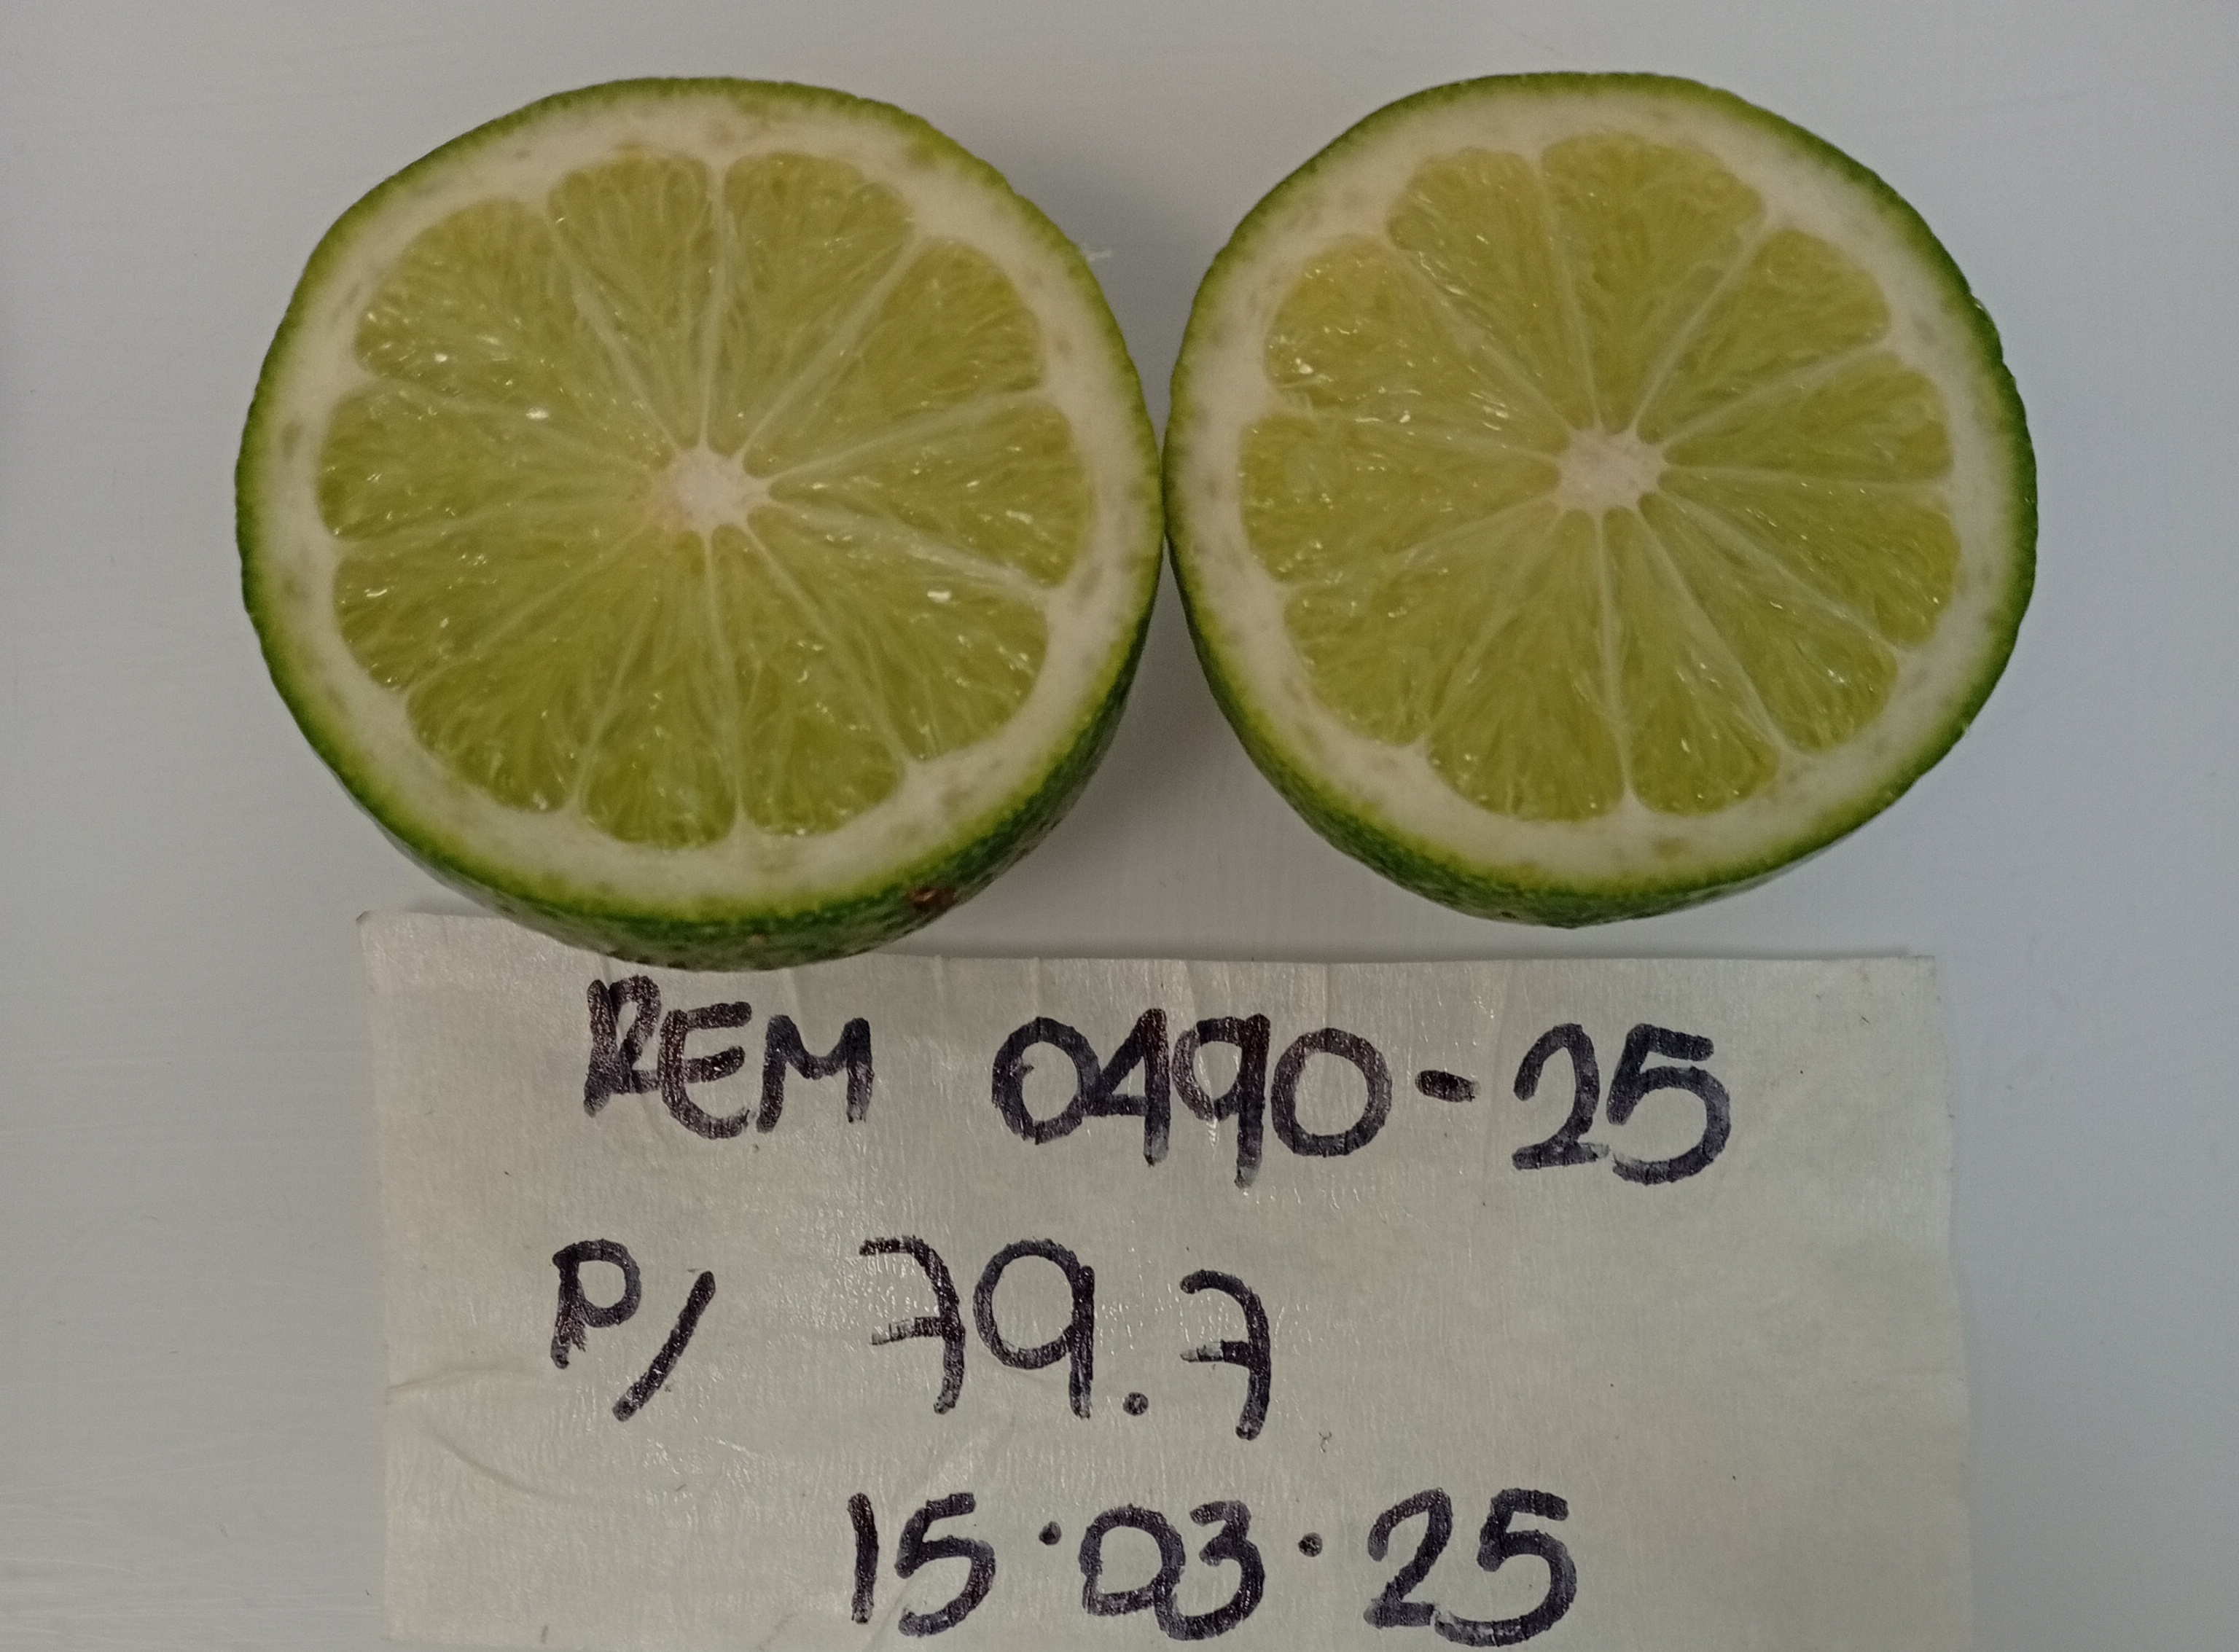 REM 0490-25
P/ 79.7
15.03.25